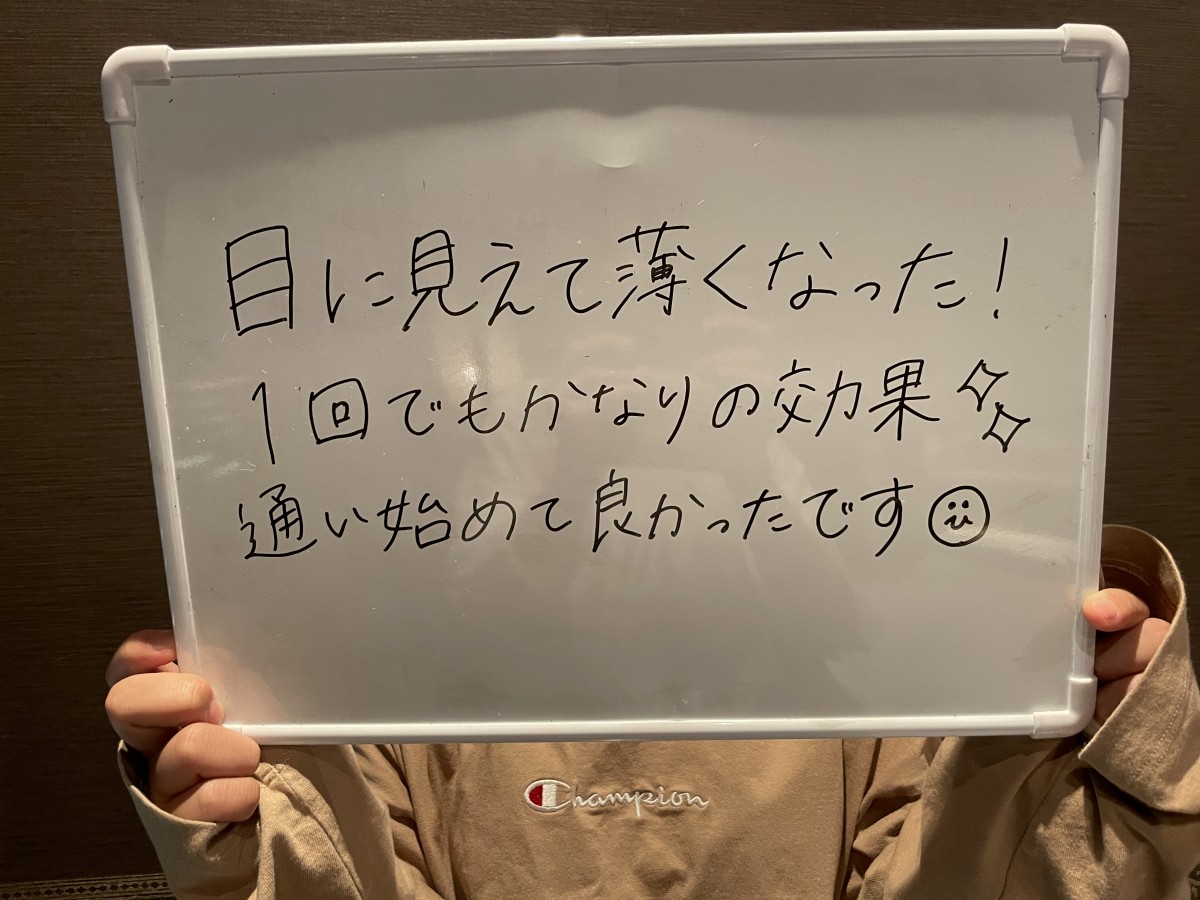 目に見えて薄くなった!
1回でもかなりの効果✧✧
通い始めて良かったです☺
Champion